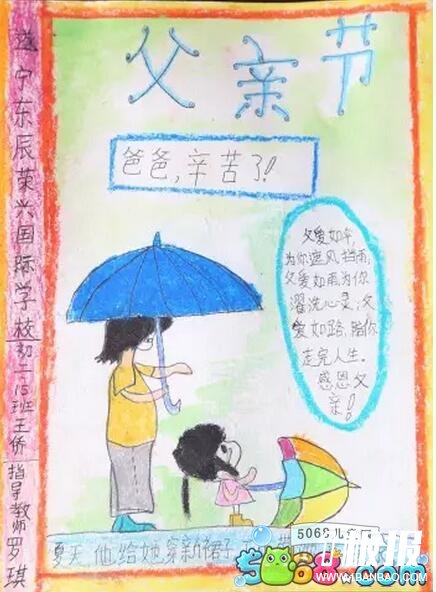 父亲节
爸爸,辛苦了!
父爱如伞,
为你遮风挡雨,
父爱如雨为你
濯洗心灵;父
爱如路,陪你
走完人生。
感恩父
亲!
遂宁东辰荣兴国际学校初二·15班王侨 指导教师罗琪
夏天,他给她穿新裙子,
5068儿
板报
5068.com
www.1BANBAO.COM